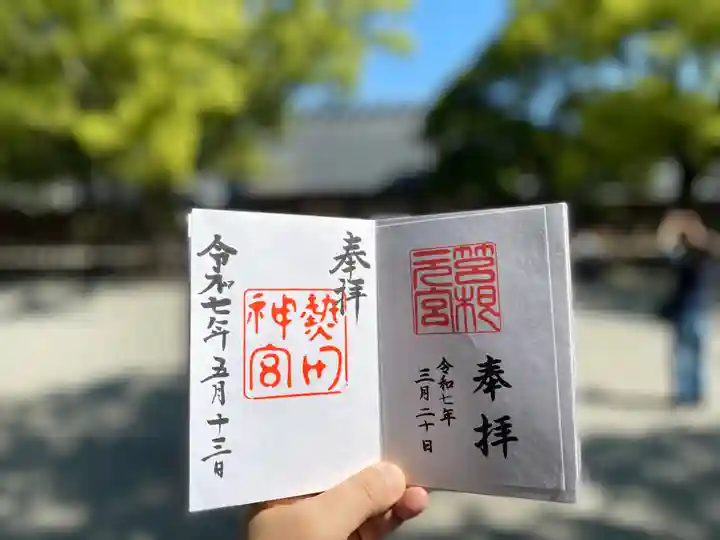 奉拝
箱根
元宮
令和七年
三月二十日
奉拝
熱田
神宮
令和七年五月十三日